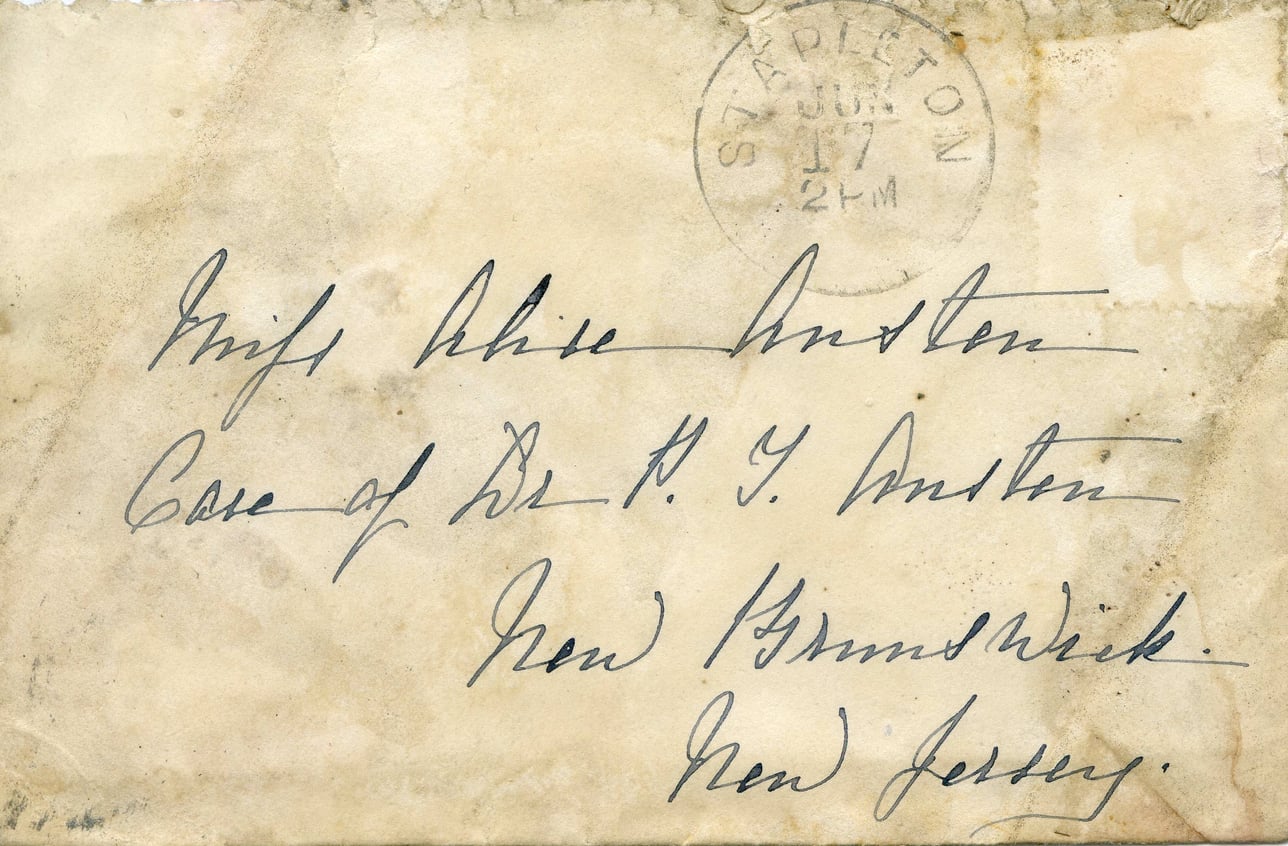 STAPLETON
JUN
17
2PM
Miss Alice Austen
Care of Dr P. T. Austen
New Brunswick.
New Jersey.